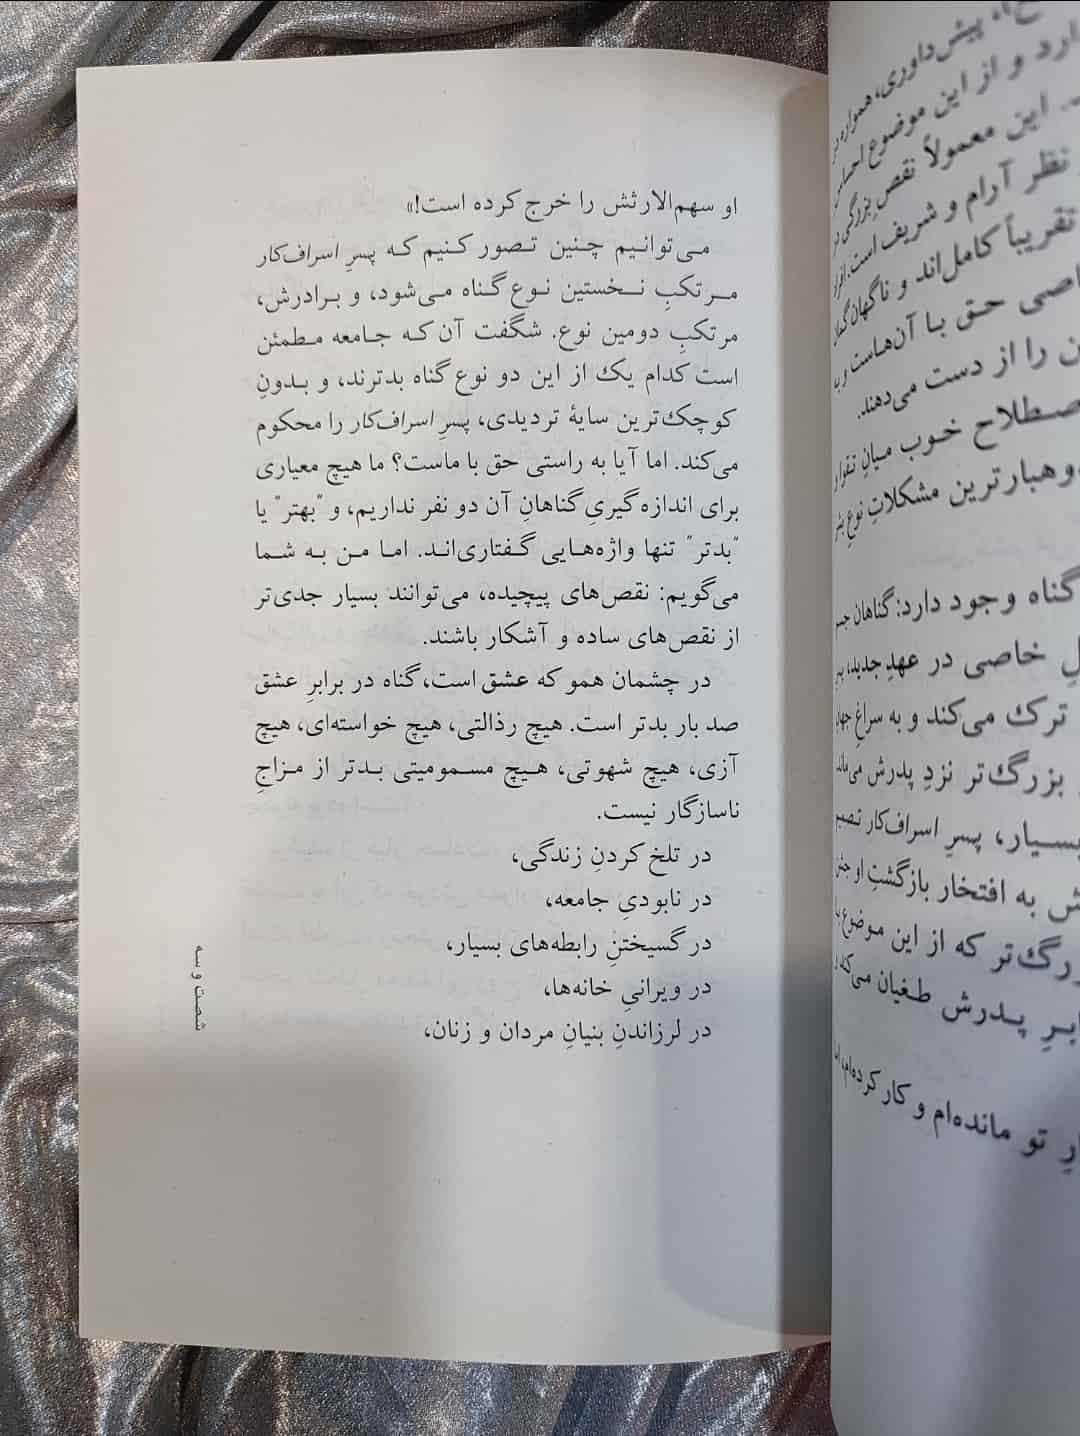 او سهم‌الارثش را خرج کرده است!»
می‌توانیم چنین تصور کنیم که پسرِ اسراف‌کار
مرتکبِ نخستین نوع گناه می‌شود، و برادرش،
مرتکبِ دومین نوع. شگفت آن‌که جامعه مطمئن
است کدام یک از این دو نوع گناه بدترند، و بدونِ
کوچک‌ترین سایهٔ تردیدی، پسرِ اسراف‌کار را محکوم
می‌کند. اما آیا به راستی حق با ماست؟ ما هیچ معیاری
برای اندازه‌گیریِ گناهانِ آن دو نفر نداریم، و "بهتر" یا
"بدتر" تنها واژه‌هایی گفتاری‌اند. اما من به شما
می‌گویم: نقص‌های پیچیده، می‌توانند بسیار جدی‌تر
از نقص‌های ساده و آشکار باشند.
در چشمان همو که عشق است، گناه در برابرِ عشق
صد بار بدتر است. هیچ رذالتی، هیچ خواسته‌ای، هیچ
آزی، هیچ شهوتی، هیچ مسمومیتی بدتر از مزاجِ
ناسازگار نیست.
در تلخ کردنِ زندگی،
در نابودیِ جامعه،
در گسیختنِ رابطه‌های بسیار،
در ویرانیِ خانه‌ها،
در لرزاندنِ بنیانِ مردان و زنان،
شصت و سه
پیش‌داوری، همواره
ارد و از این موضوع احساس
این معمولاً نقصِ بزرگی
نظر آرام و شریف است. افراد
تقریباً کامل‌اند و ناگهان
اصی حق با آن‌هاست و
ن را از دست می‌دهند.
صطلاح خوب میانِ
مشکلاتِ نوعِ
گناه وجود دارد: گناهان
لِ خاصی در عهدِ جدید،
ترک می‌کند و به سراغِ
بزرگ‌تر نزدِ پدرش
بسیار، پسرِ اسراف‌کار
ش به افتخار بازگشتِ او
رگ‌تر که از این موضوع
برِ پدرش طغیان می‌کند
رِ تو مانده‌ام و کار کرده‌ام،